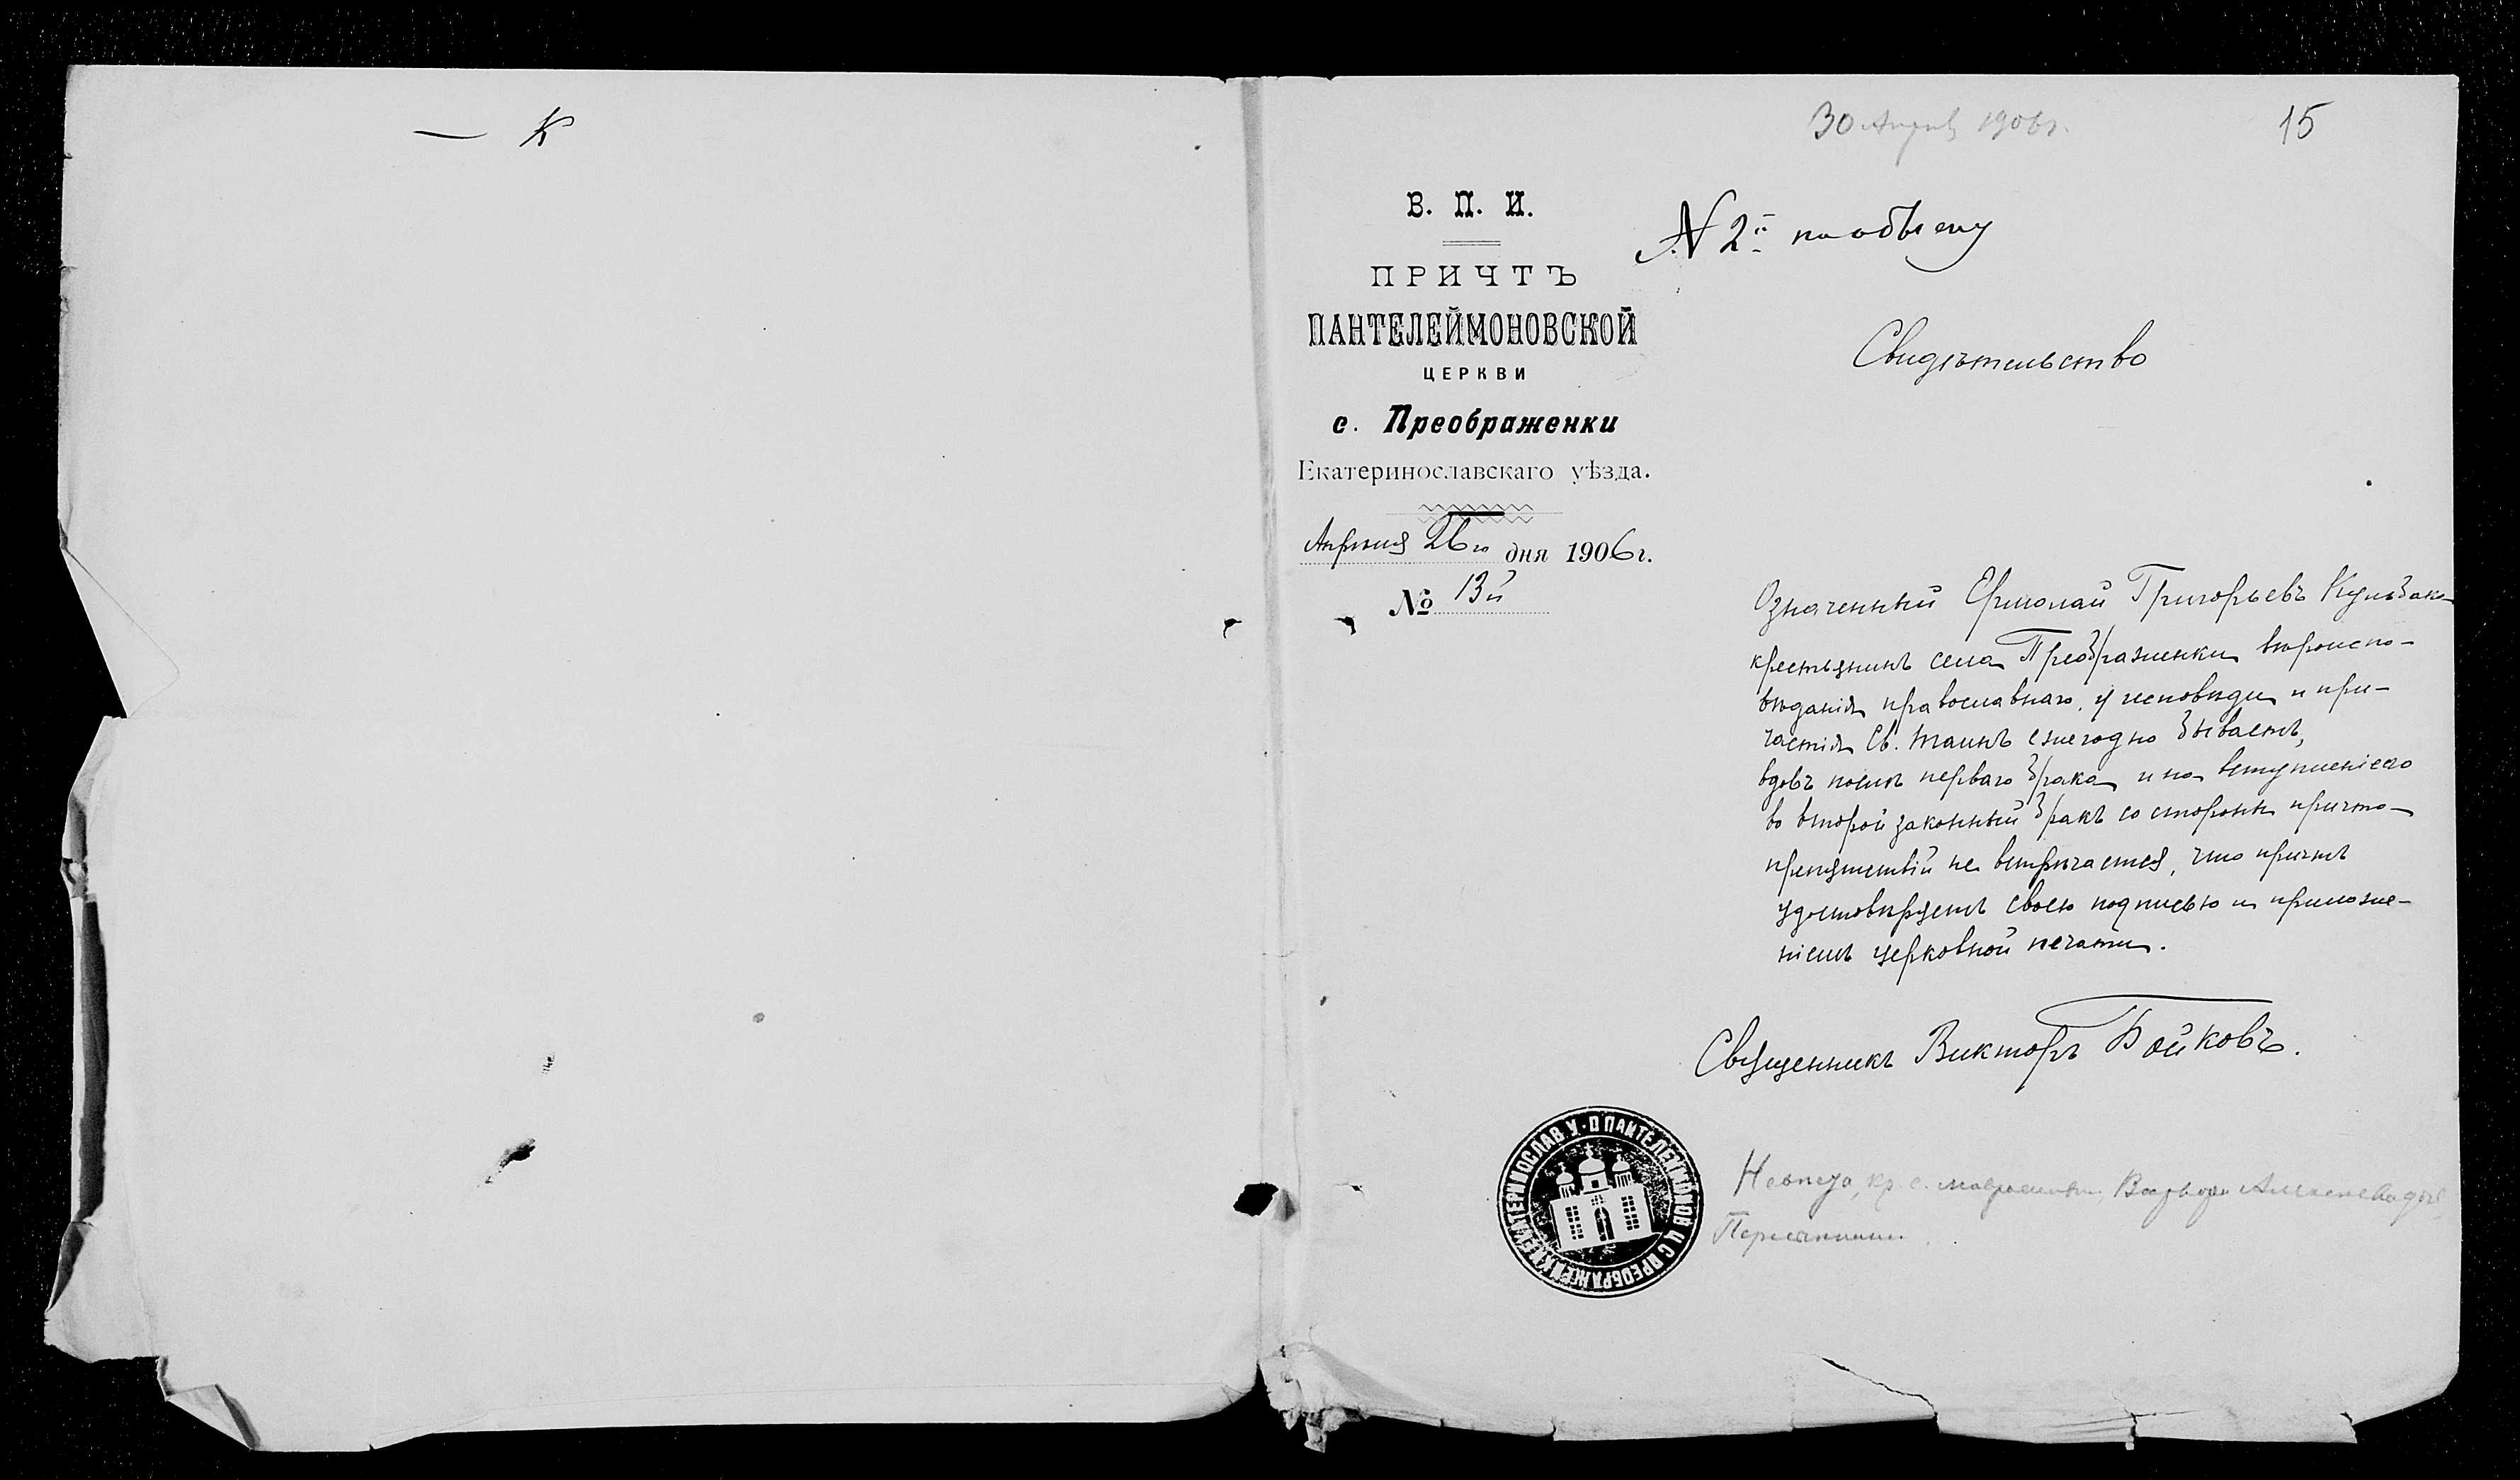 — К
30 Апрѣля 1906 г.
15
В. П. И.
ПРИЧТЪ
ПАНТЕЛЕЙМОНОВСКОЙ
ЦЕРКВИ
с. Преображенки
Екатеринославскаго уѣзда.
Апрѣля 26го дня 1906 г.
№ 13й
N 2й по обыску
Свидѣтельство
Означенный Ермолай Григорьевъ
крестьянинъ села Преображенки вѣроиспо-
вѣданія православнаго, у исповѣди и при-
частія Св. Таинъ ежегодно бываетъ,
вдовъ послѣ перваго брака и на вступленіе его
во второй законный бракъ со стороны причта
препятствій не встрѣчается, что причтъ
удостовѣряетъ своею подписью и приложе-
ніемъ церковной печати.
Священникъ Викторъ Бойковъ.
ЕКАТЕРИНОСЛАВ. У. П ПАНТЕЛЕЙМОНОВ Ц С ПРЕОБРАЖЕНКИ
Невѣста, кр. с. Варвара Алексѣева